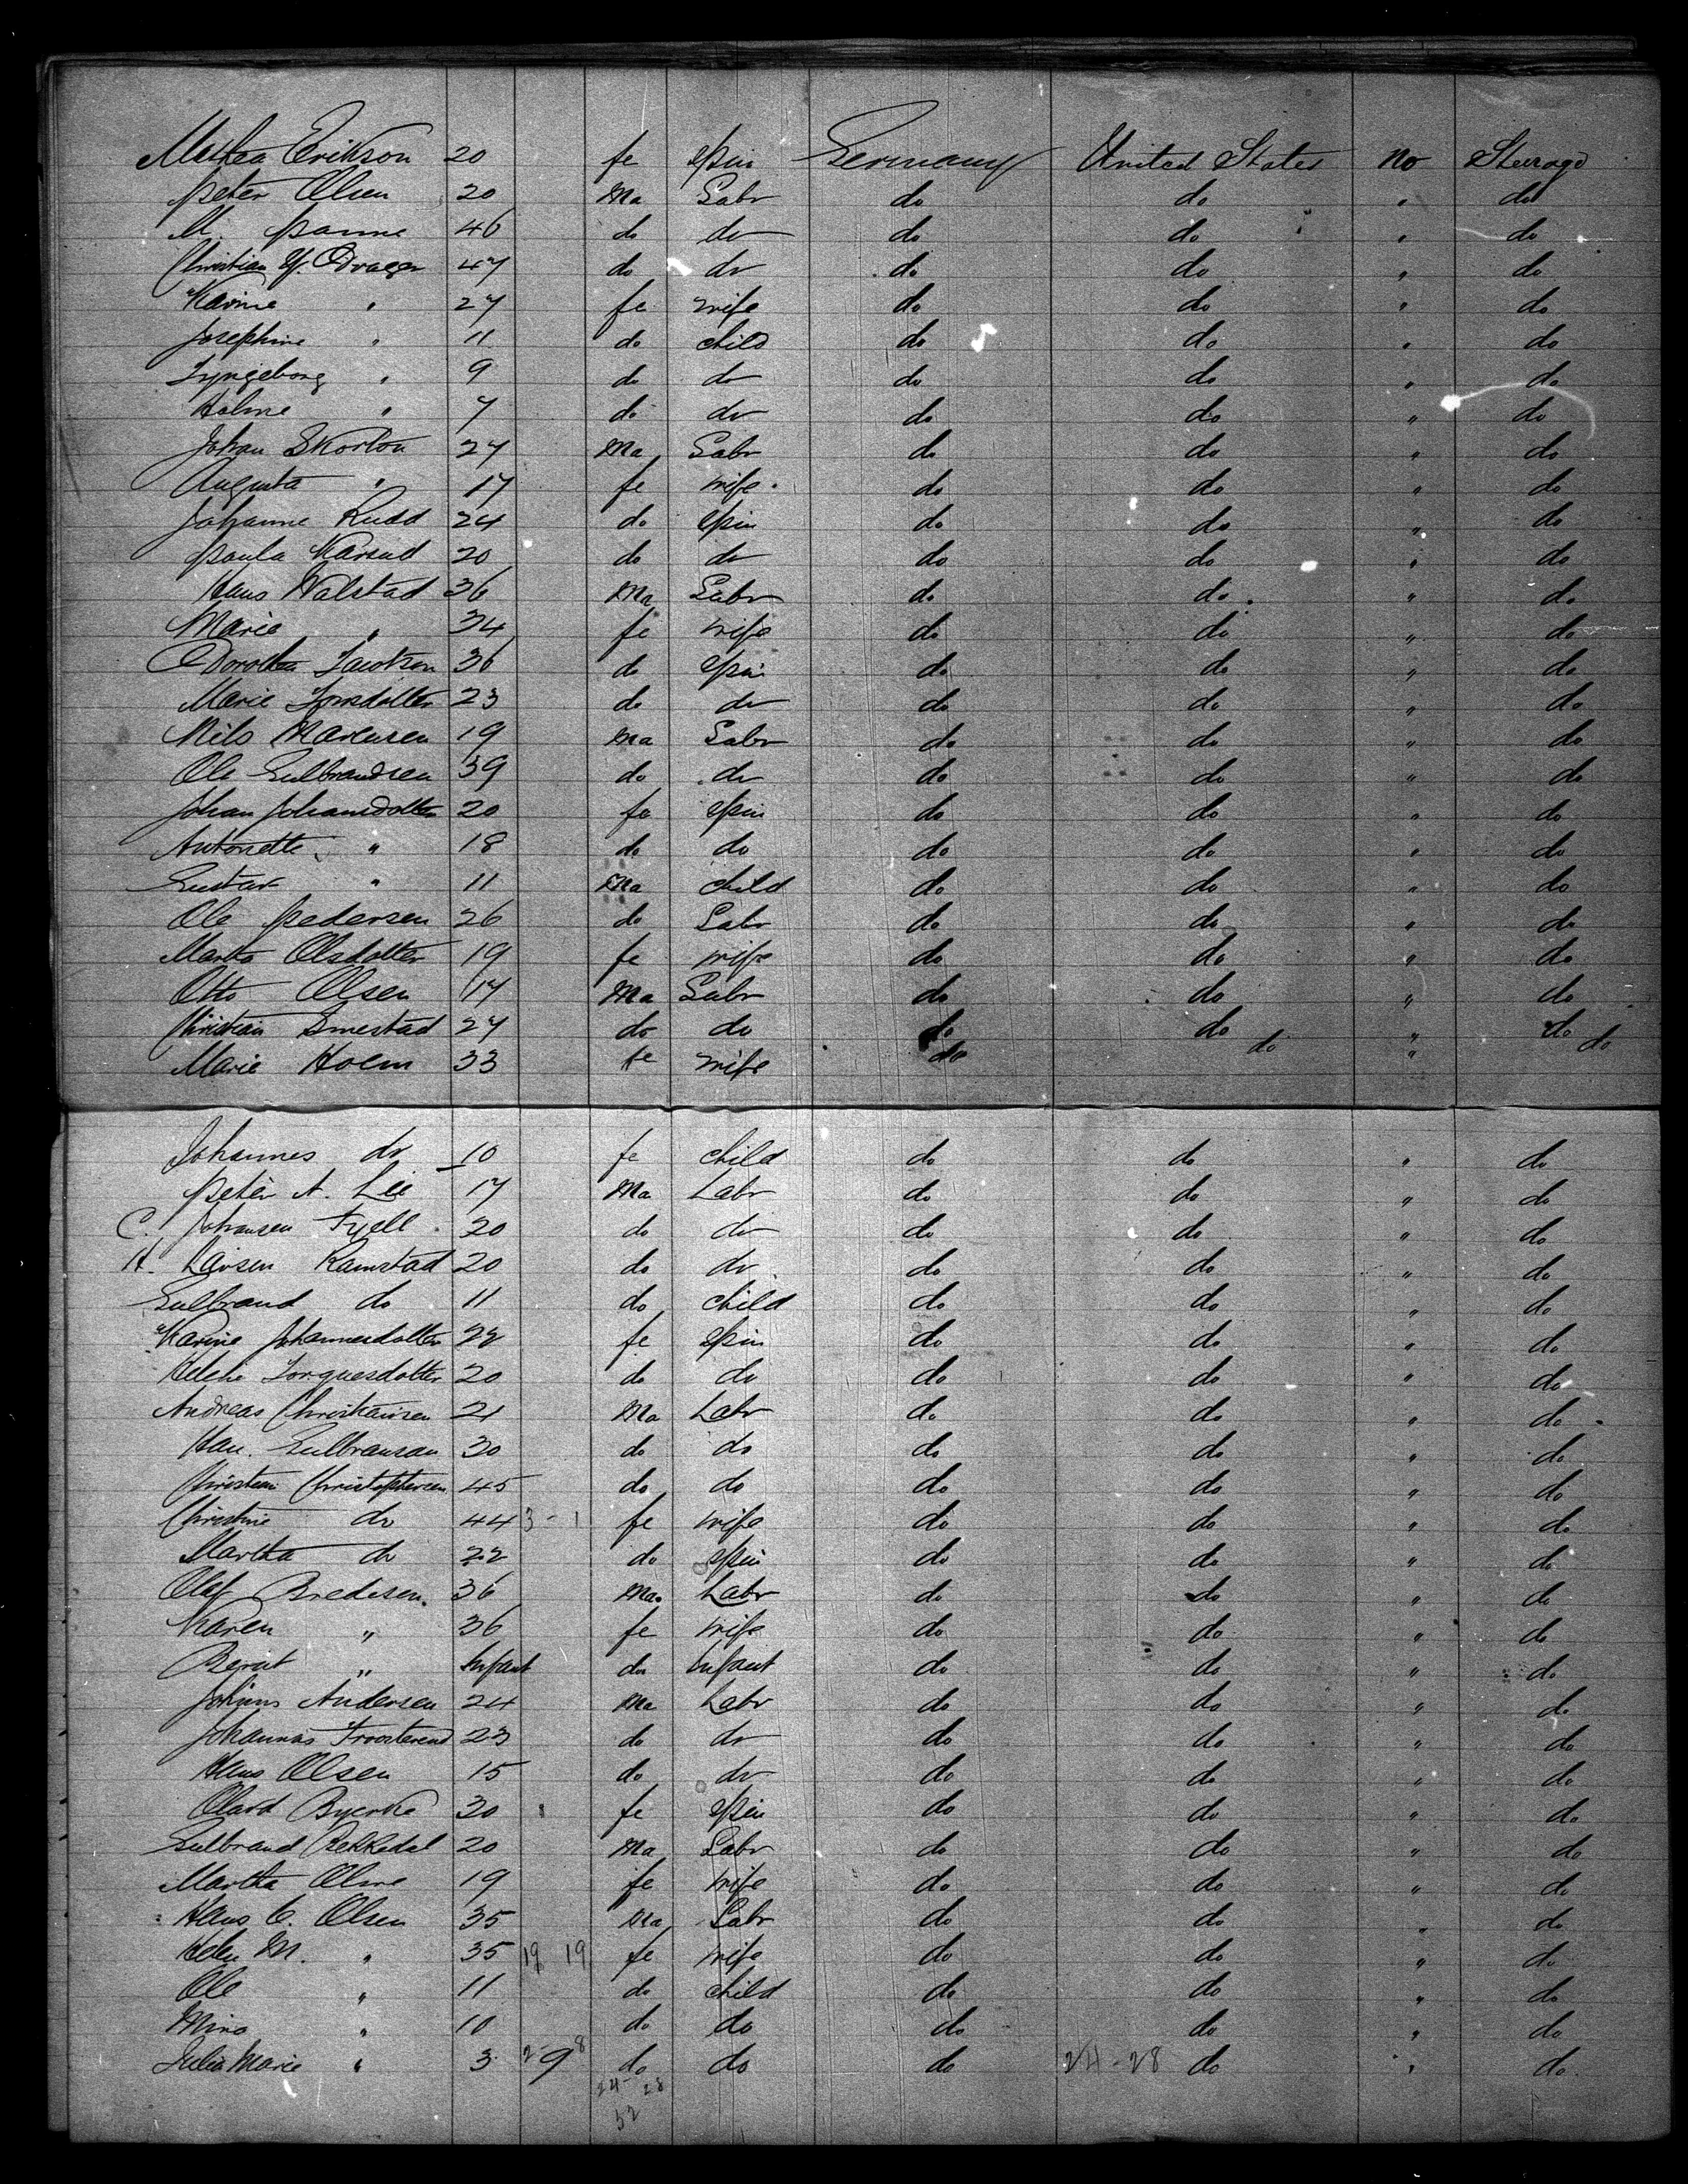 Mathea Erikson 20 fe spin Germany United States no Steerage
Peter Olsen 20 Ma Labr do do " do
M. 46 do do do do " do
Christian Y. Drager 47 do do do do " do
Karine " 27 fe wife do do " do
Josephine " 11 do child do do " do
Lyngeborg " 9 do do do do " do
Holme " 7 do do do do " do
Johan Skorton 27 Ma Labr do do " do
Augusta " 17 fe wife do do " do
Johanne Rudd 24 do spin do do " do
Paula 20 do do do do " do
Hans Walstad 36 Ma Labr do do " do
Marie " 34 fe wife do do " do
Dorothea Jacobson 36 do spin do do " do
Marie 23 do do do do " do
Nils Marensen 19 Ma Labr do do " do
Ole Gulbrandsen 39 do do do do " do
Johan Johansdotter 20 fe spin do do " do
Antonette " 18 do do do do " do
Gustav " 11 Ma child do do " do
Ole Pedersen 26 do Labr do do " do
Martha Olsdotter 19 fe wife do do " do
Otto Olsen 17 Ma Labr do do " do
Christian Smestad 27 do do do do " do
Marie Holm 33 fe wife do do " do
Johannes do 10 fe child do do " do
Peter A. Lie 17 Ma Labr do do " do
C. Johansen Fyell 20 do do do do " do
H. Larsen Ramstad 20 do do do do " do
Gulbrand do 11 do child do do " do
Karine Johannesdotter 22 fe spin do do " do
Helene Torguesdotter 20 do do do do " do
Andreas Christiansen 21 Ma Labr do do " do
Han. Gulbransan 30 do do do do " do
Christian Christophersen 45 do do do do " do
Christine do 44 3 - 1 fe wife do do " do
Martha do 22 do spin do do " do
Olef Bredesen. 36 Ma Labr do do " do
Karen " 36 fe wife do do " do
Berit " Infant do Infant do do " do
Johans Andersen 24 Ma Labr do do " do
Johannas 23 do do do do " do
Hans Olsen 15 do do do do " do
Olard Byerke 30 fe spin do do " do
Gulbrand Bekkedal 20 Ma Labr do do " do
Martha Olsne 19 fe wife do do " do
Hans C. Olsen 35 Ma Labr do do " do
Helen M. " 35 19 19 fe wife do do " do
Ole " 11 do child do do " do
Mina " 10 do do do do " do
Julia Marie " 3 2-9 8 do do do 24-28 do " do
24 - 28
52